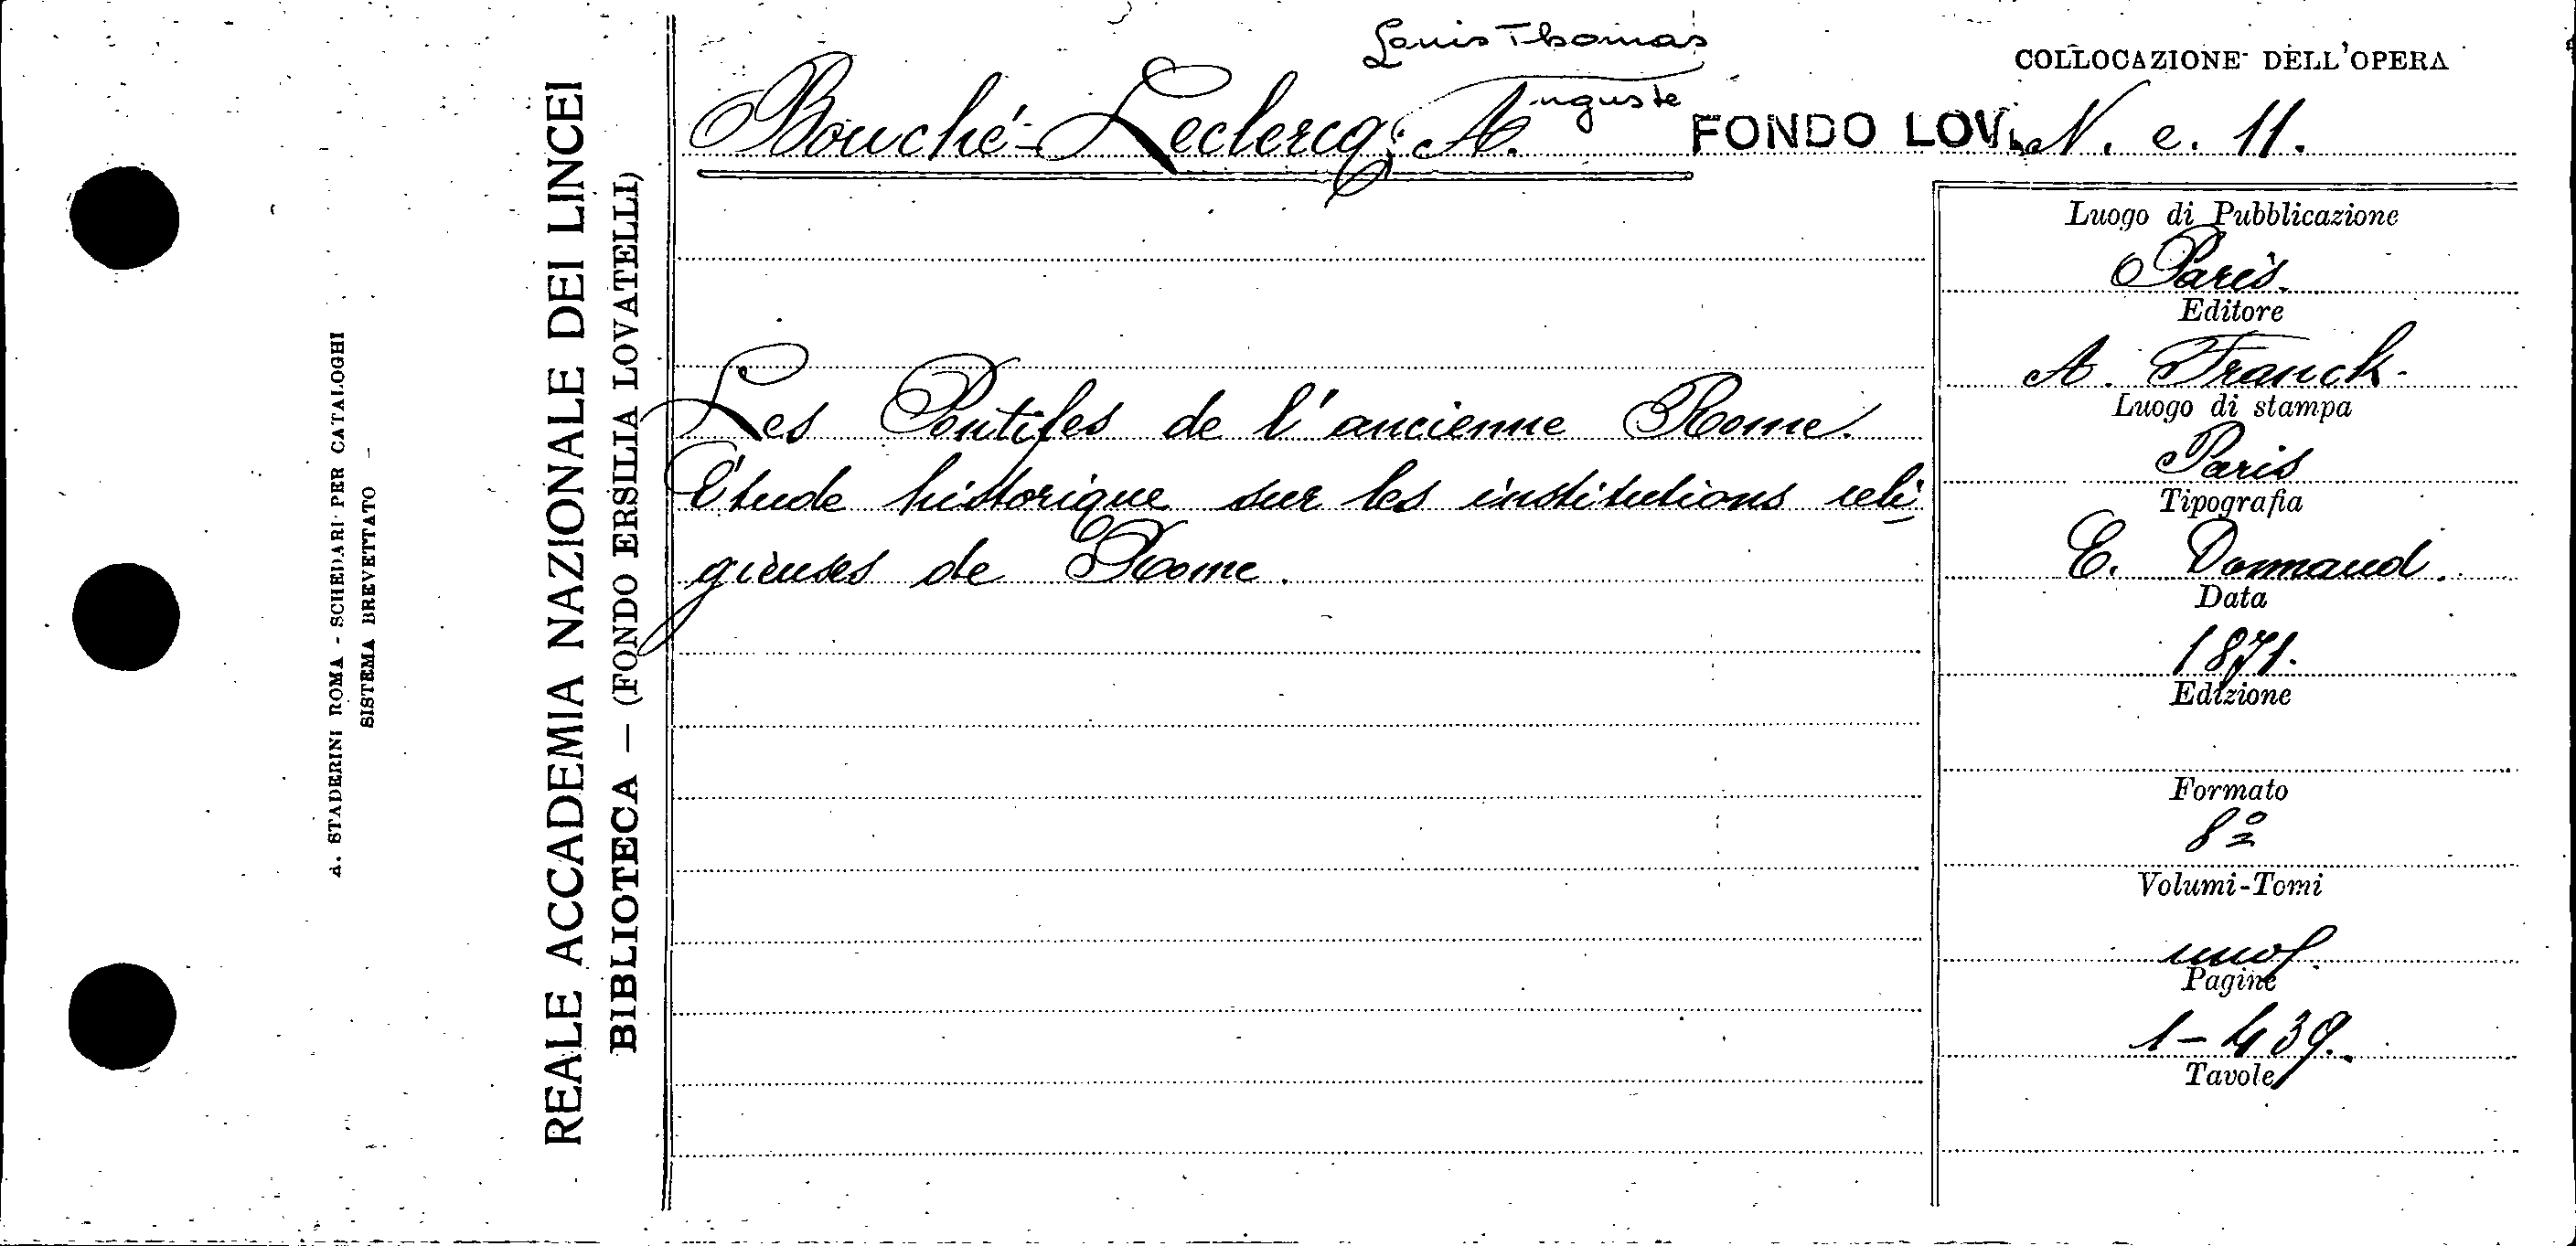 A. STADERINI ROMA - SCHEDARI PER CATALOGHI
SISTEMA BREVETTATO -
REALE ACCADEMIA NAZIONALE DEI LINCEI
BIBLIOTECA — (FONDO ERSILIA LOVATELLI)
Louis Thomas
Bouché-Leclercq; Auguste
FONDO LOV.
COLLOCAZIONE DELL'OPERA
N. e. 11.
Les Pontifes de l'ancienne Rome.
Étude historique sur les institutions reli-
gieuses de Rome.
Luogo di Pubblicazione
Paris.
Editore
A. Franck.
Luogo di stampa
Paris
Tipografia
E. Donnaud.
Data
1871.
Edizione
Formato
8º
Volumi-Tomi
uno.
Pagine
1-439.
Tavole